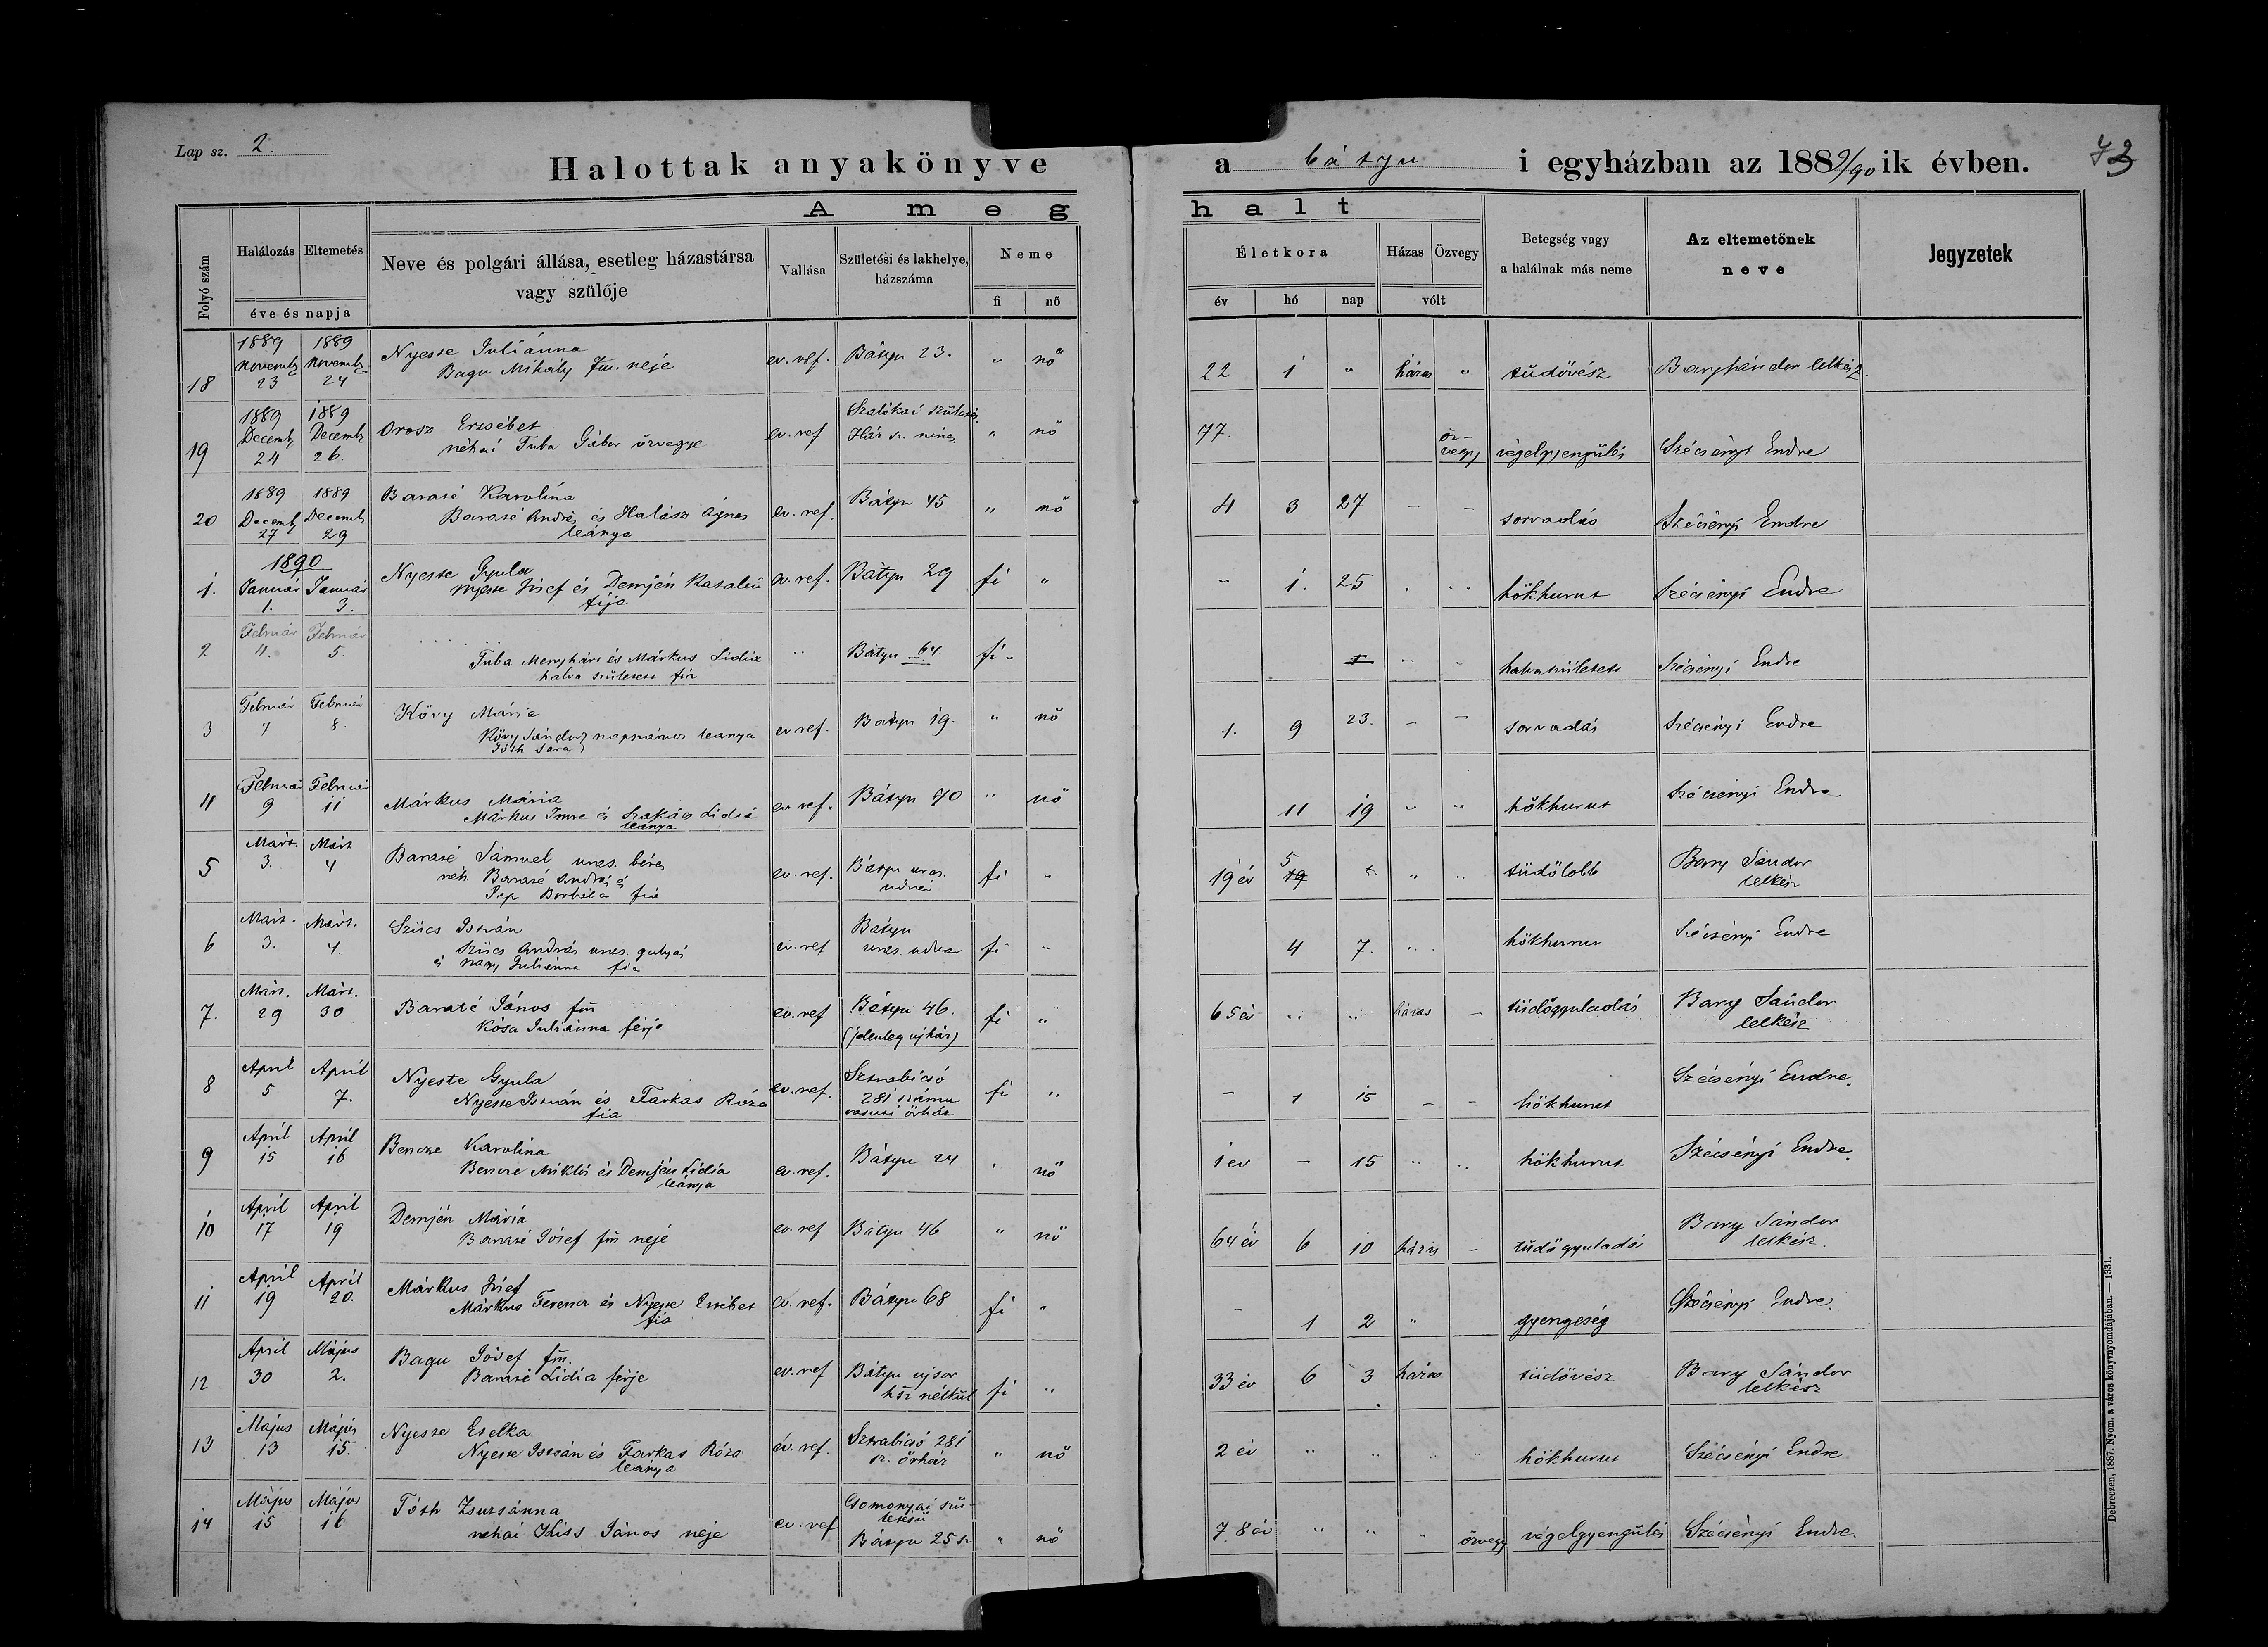 Lap sz. 2.
Halottak anyakönyve
a bátyu i egyházban az 1889/90 ik évben.
73
A meg halt
Folyó szám
Halálozás Eltemetés
éve és napja
Neve és polgári állása, esetleg házastársa
vagy szülője
Vallása
Születési és lakhelye,
házszáma
Neme
fi nő
Életkora
év hó nap
Házas Özvegy
vólt
Betegség vagy
a halálnak más neme
Az eltemetőnek
neve
Jegyzetek
1889 1889
Novemb Novemb
18 23 24
Nyeste Juliánna
Bagu Mihály fm. neje
ev. ref. Bátyu 23. „ nő
22 1 „ házas „ tüdővész Bary Sándor lelkész
1889 1889
Decemb Decemb
19 24 26.
Orosz Erzsébet
néhai Tuba Gábor özvegye
ev. ref Szalókai születés
Ház sz. nincs „ nő
77. öz-
vegy végelgyengülés Szécsényi Endre
1889 1889
20 Decemb Decemb
27 29
Baraté Karolina
Baraté András és Halász Ágnes
leánya
ev. ref. Bátyu 45 „ nő
4 3 27 – – sorvadás Szécsényi Endre
1890
1. Január Január
1. 3.
Nyeste Gyula
Nyeste József és Demjén Katalin
fija
ev. ref. Bátyu 29 fi „
„ 1. 25 hökhurut Szécsényi Endre
2 Február Február
4. 5.
Tuba Menyhárt és Márkus Lidia
halva született fia
„ Bátyu 64. fi „
1 halva született Szécsényi Endre
3 Február Február
7 8.
Kövy Mária
Kövy Sándor napszámos leanya
Tóth Sára
ev ref. Bátyu 19. „ nő
1. 9 23. – – sorvadás Szécsényi Endre
4 Február Február
9 11
Márkus Mária
Márkus Imre és Szakács Lidia
leánya
ev ref. Bátyu 70 „ nő
11 19 „ „ hökhurut Szécsényi Endre
5 Márt. Márt
3. 4
Baraté Sámuel uras. béres
néh. Baraté András és
Pap Borbála fia
ev. ref. Bátyu uras.
udvar fi „
19 év 5 19 „ „ tüdőlobb Bary Sándor
lelkész
6 Márt. Márt.
3. 4.
Szücs István
Szücs András uras. gulyás
és Nagy Juliánna fia
ev. ref Bátyu
uras. udvar fi „
4 7. „ hökhurut Szécsényi Endre
7. Márt. Márt.
29 30
Baraté János fm
Kósa Juliánna férje
ev. ref Bátyu 46.
(jelenleg ujház) fi „
65 év „ „ házas – tüdőgyuladás Bary Sándor
lelkész
8 April April
5 7.
Nyeste Gyula
Nyeste István és Farkas Róza
fia
ev. ref. Sztrabicsó
281 számu
vasuti őrház fi „
– 1 15 – – hökhurut Szécsényi Endre.
9 April April
15 16
Bencze Karolina
Bencze Miklós és Demjén Lidia
leánya
ev. ref. Bátyu 24 „ nő
1 ev – 15 „ „ hökhurut Szécsényi Endre.
10 April April
17 19
Demjén Mária
Baraté József fm neje
ev. ref Bátyu 46 „ nő
64 év 6 10 házas – tüdő gyuladás Bary Sándor
lelkész.
11 April April
19 20.
Márkus József
Márkus Ferencz és Nyeste Erzsébet
fia
ev. ref. Bátyu 68 fi „
– 1 2 „ gyengeség Szécsényi Endre.
12 April Május
30 2.
Bagu József fm.
Baraté Lidia férje
ev. ref Bátyu ujsor
hsz nélkül fi „
33 év 6 3 házas tüdővész Bary Sándor
lelkész
13 Május Május
13 15.
Nyeste Etelka
Nyeste István és Farkas Róza
leánya
ev. ref. Sztrabicsó 281
sz. őrház „ nő
2 év „ „ „ hökhurut Szécsényi Endre
14 Május Május
15 16
Tóth Zsuzsánna
néhai Kiss János neje
ev. ref Csomonyai szü-
letésü
Bátyu 25 sz „ nő
78 év „ „ „ özvegy végelgyengülés Szécsényi Endre.
Debreczen, 1887. Nyom. a város könyvnyomdájában. — 1331.